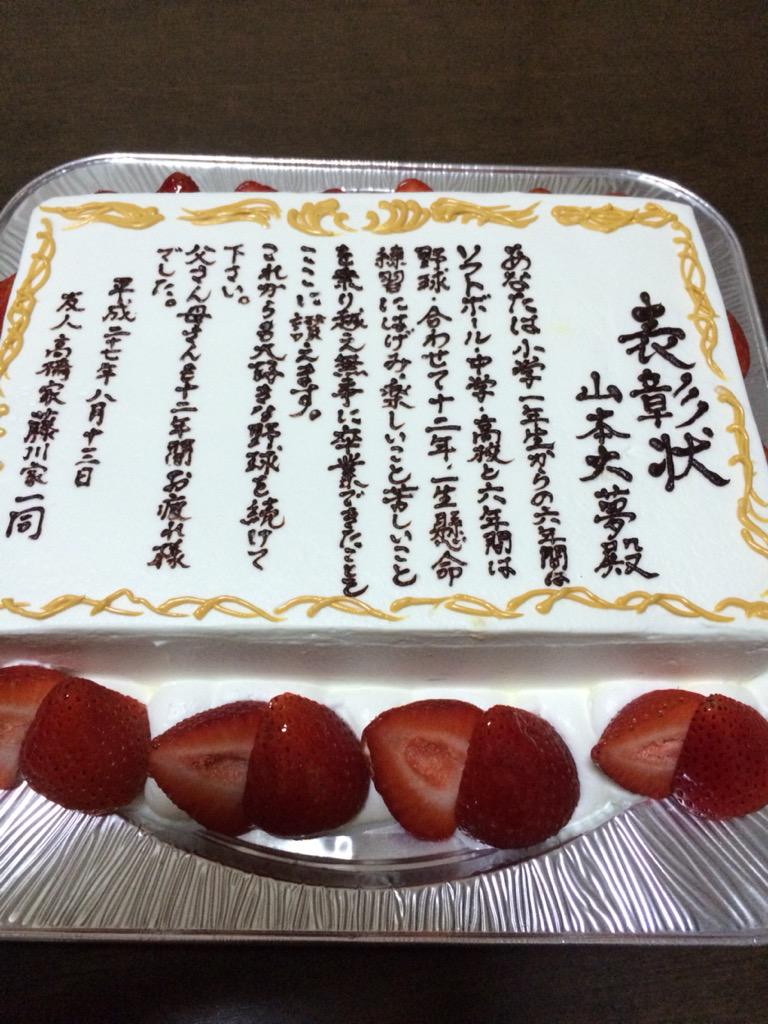 表彰状
山本大夢殿
あなたは小学一年生からの六年間は
ソフトボール・中学・高校と六年間は
野球・合わせて十二年・一生懸命
練習にはげみ・楽しいこと苦しいこと
を乗り越え無事に卒業できたことを
ここに讃えます。
これからも大好きな野球を続けて
下さい。
父さん母さんも十二年間お疲れ様
でした。
平成二十七年八月十三日
友人高橋家藤川家一同